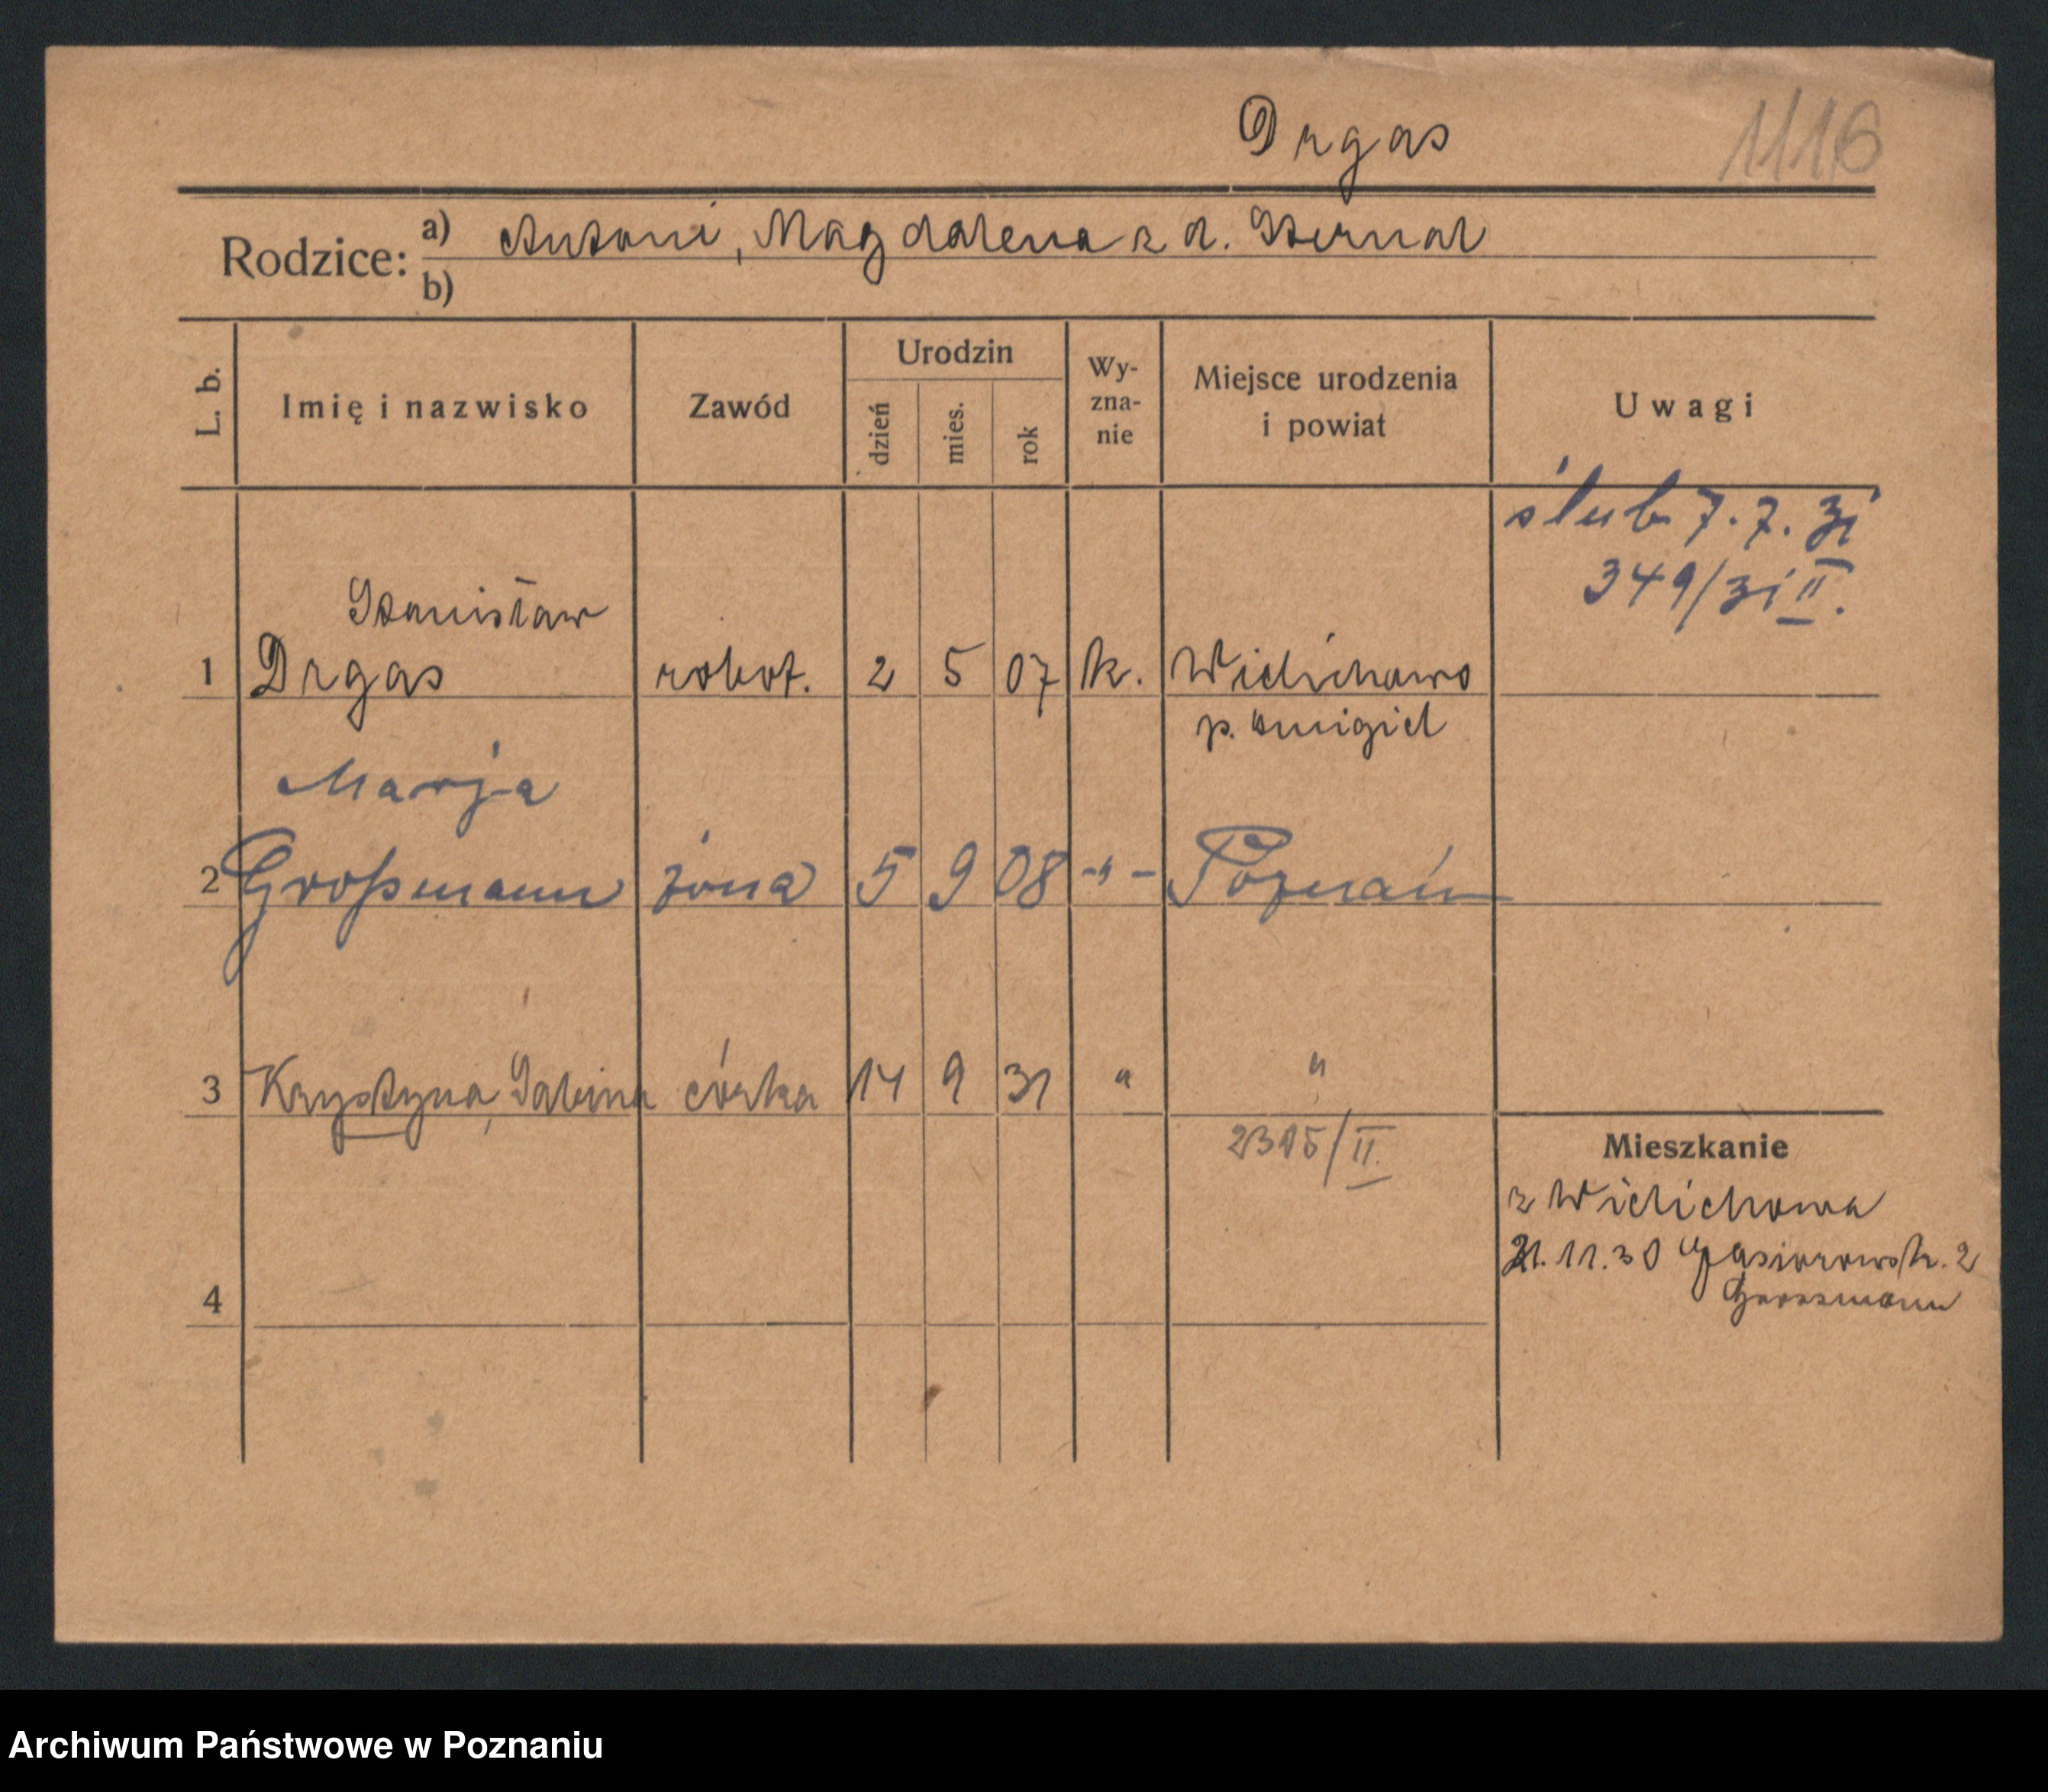 Drgas
1116
Rodzice: a) Antoni, Magdalena z d. Sternal
b)
L. b. Imię i nazwisko Zawód Urodzin dzień mies. rok Wy-zna-nie Miejsce urodzenia i powiat Uwagi
ślub 7.7.31
349/31 II.
Stanisław
1 Drgas robot. 2 5 07 k. Wielichowo
p. Śmigiel
Marja
2 Großmann żona 5 9 08 -"- Poznań
3 Krystyna, Sabina córka 14 9 31 " "
2315/II.
Mieszkanie
z Wielichowa
21.11.30 Gąsiorowsk. 2
Grossmann
4
Archiwum Państwowe w Poznaniu